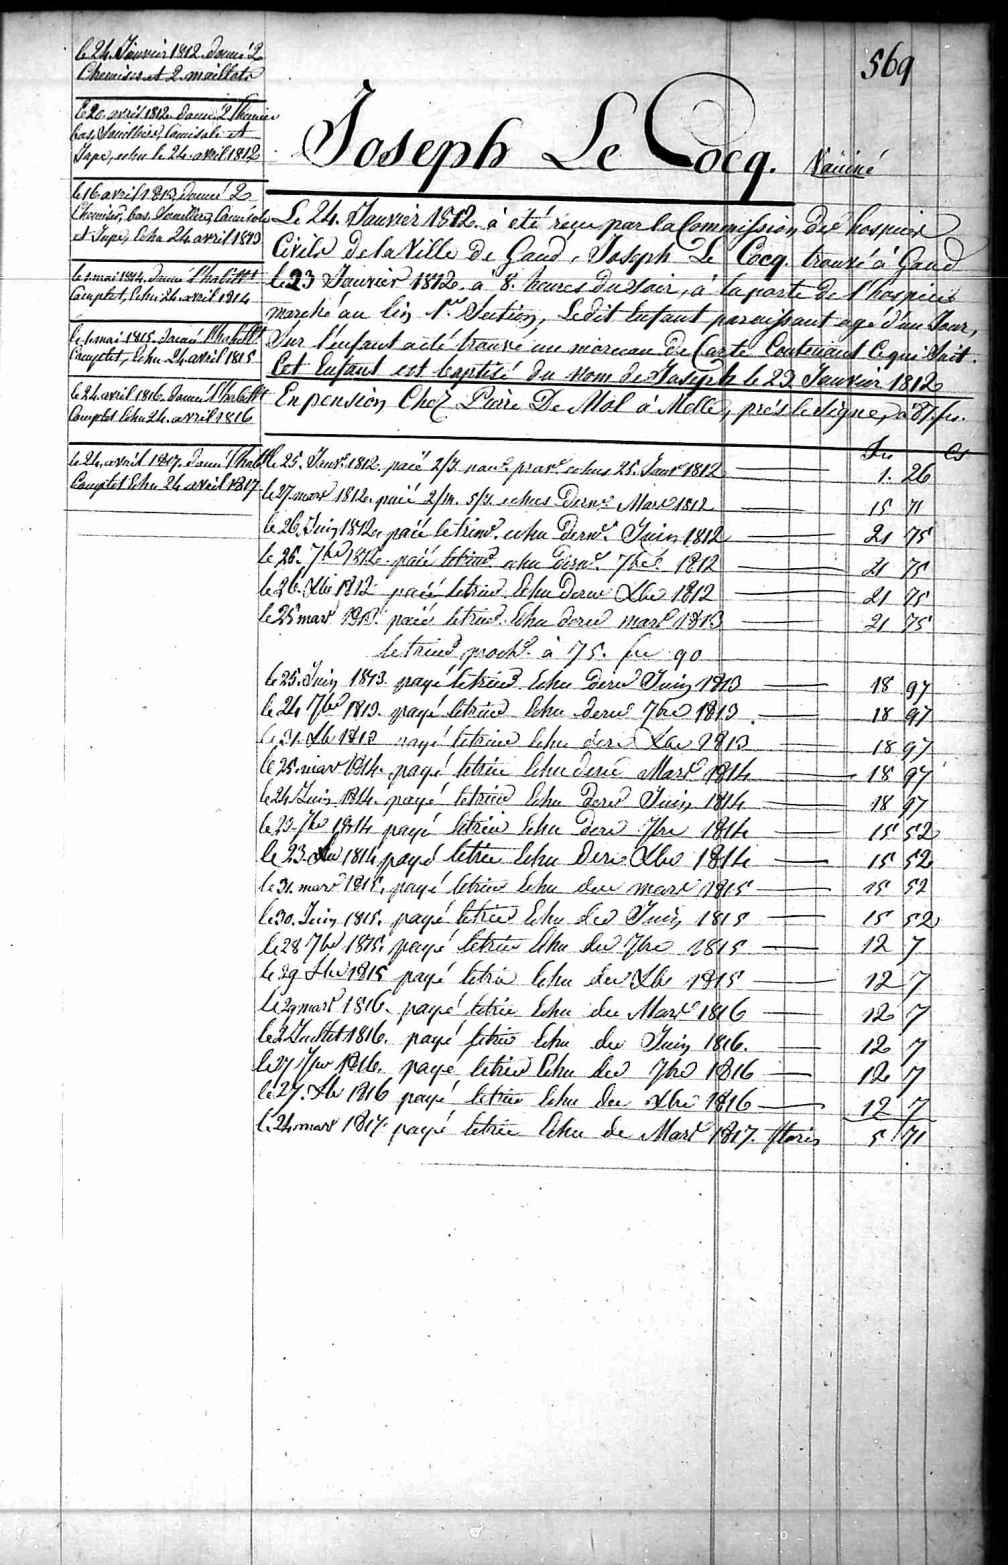 569
Joseph Le Cocq. Vacciné
le 24. Janvier 1812. donné 2
Chemises et 2. maillots
le 20 avril 1812. donné 2 Chemises
bas, Souilliers, Camisole et
Jupe, echu le 24. avril 1812
le 16 avril 1813 donné 2
Chemises, bas, Souilliers, Camisole
et Jupe, Echu 24. avril 1813
le 1 mai 1814. donné l'habillt
Complet, Echu 24. avril 1814
le 1 mai 1815. donné l'habillt
Complet, Echu 24. avril 1815
le 24. avril 1816. donné l'habillt
Complet Echu 24. avril 1816
le 24. avril 1817. donné l'habillt
Complet Echu 24 avril 1817
Le 24. Janvier 1812. a été reçu par la Commission des hospices
Civils de la Ville de Gand, Joseph Le Cocq. trouvé à Gand
le 23 Janvier 1812. a 8. heures du soir, à la porte de l'hospice
marché au lin 1re Section, Ledit Enfant paroissant agé d'un Jour,
Sur l'enfant a été trouvé un morceau de Carte Contenant Ce qui Suit.
Cet Enfant est baptisé du nom de Joseph le 23 Janvier 1812
En pension Chez Pierre De Mol à Melle, près le Signe, à 87. fr.
Frs Cs
le 25. Janvr 1812. paié 2/3. echus 25. Janvr 1812 1. 26
le 27 mars 1812. paié 2/m. 5/3. echus dernr Mars 1812 15 71
le 26. Juin 1812. paié le trimr. echu dernr. Juin 1812 21 75
le 26. 7bre 1812. paié le trimr echu dernr. 7bre. 1812 21 75
le 26. Xbre 1812 paié le trim Echu dernr Xbre 1812 21 75
le 25 mars 1813. paié le trimr. Echu dernr mars 1813 21 75
le trimr. proch. à 75. frs 90
le 25. Juin 1813. payé le trimr. Echu dernr Juin 1813 18 97
le 24 7bre 1813. payé le trimr Echu dernr 7bre 1813. 18 97
le 31. Xbre 1813 payé le trimr Echu dernr Xbre 1813 18 97
le 25. mars 1814. payé le trim Echu dernr Mars 1814 18 97
le 24 Juin 1814. payé le trimr Echu dernr Juin 1814 18 97
le 23 7bre 1814 payé le trim Echu dernr 7bre 1814 15 52
le 23. Xbre 1814 payé le trim Echu dernr Xbre 1814 15 52
le 31. mars 1815. payé le trim Echu der mars 1815 15 52
le 30. Juin 1815. payé le trim Echu der Juin 1815 15 52
le 28 7bre 1815. payé le trim Echu der 7bre 1815 12 7
le 29 Xbre 1815 payé le trim Echu der Xbre 1815 12 7
le 29 mars 1816. payé le trim Echu der Mars 1816 12 7
le 2 Juillet 1816. payé le trim Echu der Juin 1816. 12 7
le 27 7bre 1816. payé le trim Echu der 7bre 1816 12 7
le 27. Xbre 1816 payé le trim Echu der Xbre 1816 12 7
le 24 mars 1817. payé le trim Echu de Mars 1817. florins 5 71